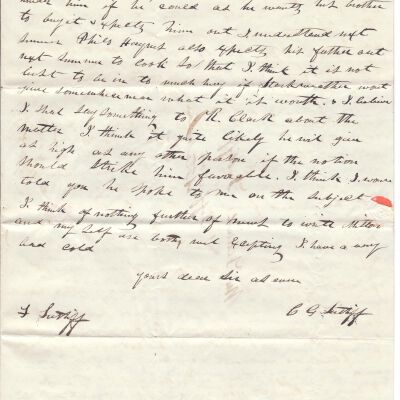 him if he could as he wants his brother
to buy it & expects him out I understand next
summer Phils Haynes also expects his father out
next summer to look so that I think it is not
best to be in to much hurry if Starkweather wont
give somewhere near what it is worth, & I believe
I shal say something to R. Clark about the
matter I think it quite likely he wil give
as high as any other person if the notion
should strike him favorable. I think I
told you he spoke to me on the subject
I think of nothing further of much to write Milton
and my self are both well excepting I have a very
bad cold
yours dear Sir as ever
C G Sutliff
F Sutliff